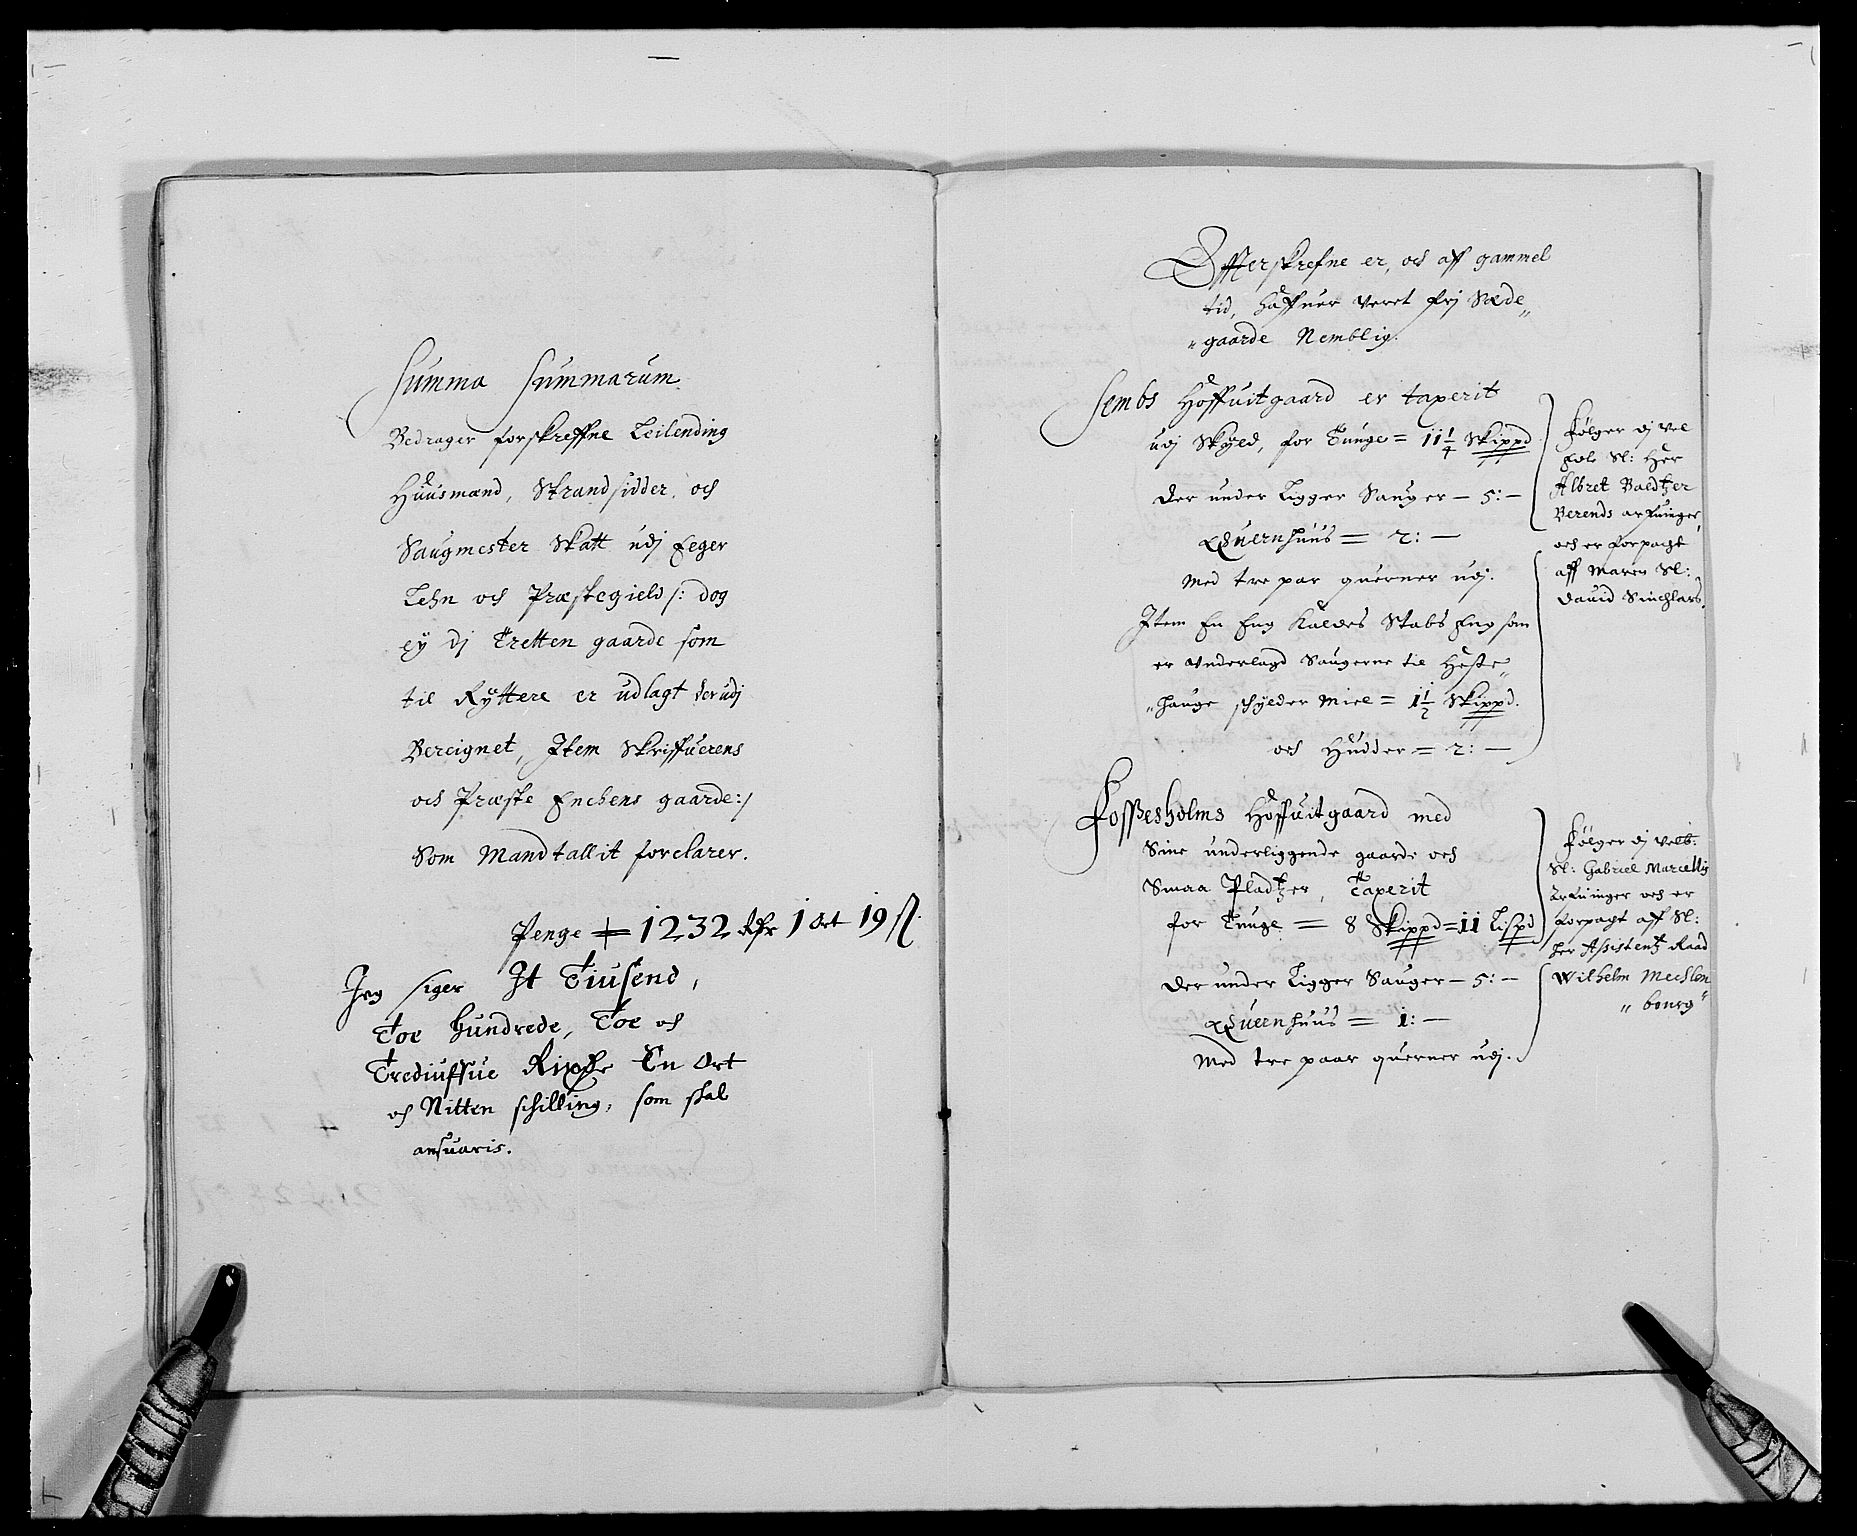 Summa Summarum.
Bedrager forskreffne Leilending
Huusmænd, Strandsidder, och
Saugmester Skatt udj Eeger
Lehn och Præstegield /: dog
ey dj Tretten gaarde som
til Ryttere er udlagt derudj
Bereignet, Item Skriffuerens
och Præste Enckens gaarde :/
Som Mandtallit forclarer.
Penge 1232 Rdr 1 Ort 19 ß.
Jeg siger It Tiusend,
Toe Hundrede, Toe och
Trediuffue Rixdlr En Ort
och Nitten schilling, som skal
ansuaris.
Offuerskrefne er, och aff gammel
tid, haffuer veret frj Sæde„
„gaarde Nemblig.
Sembs Hoffuitgaard er taxerit
udj Skyld, for Tunge = 11 1/4 Skippd
Der under Ligger Sauger — 5: —
Qvernhuus = 2: —
Med tre par querner udj.
Item En Eng Kaldes Stabs Eng som
er Underlagd Saugerne til Heste„
„hauge schylder Miel = 1 1/2 Skippd.
och Hudder = 2: —
Følger dj vel
Edle Sl: Her
Albret Baltzer
Berends arfuinger,
och er forpagt
aff Maren Sl:
David Sinchlars.
Fossesholms Hoffuitgaard med
Sine underliggende gaarde och
Smaa Pladtzer, Taxerit
for Tunge = 8 Skippd = 11 Lispd
Der under Ligger Sauger — 5: —
Qvernhuus = 1: —
Med tre paar querner udj.
Følger dj velb:
Sl: Gabriel Marcellis
Arfuinger och er
forpagt aff Sl:
her Assistentz Raad
Wilhelm Mechlen
„borg"